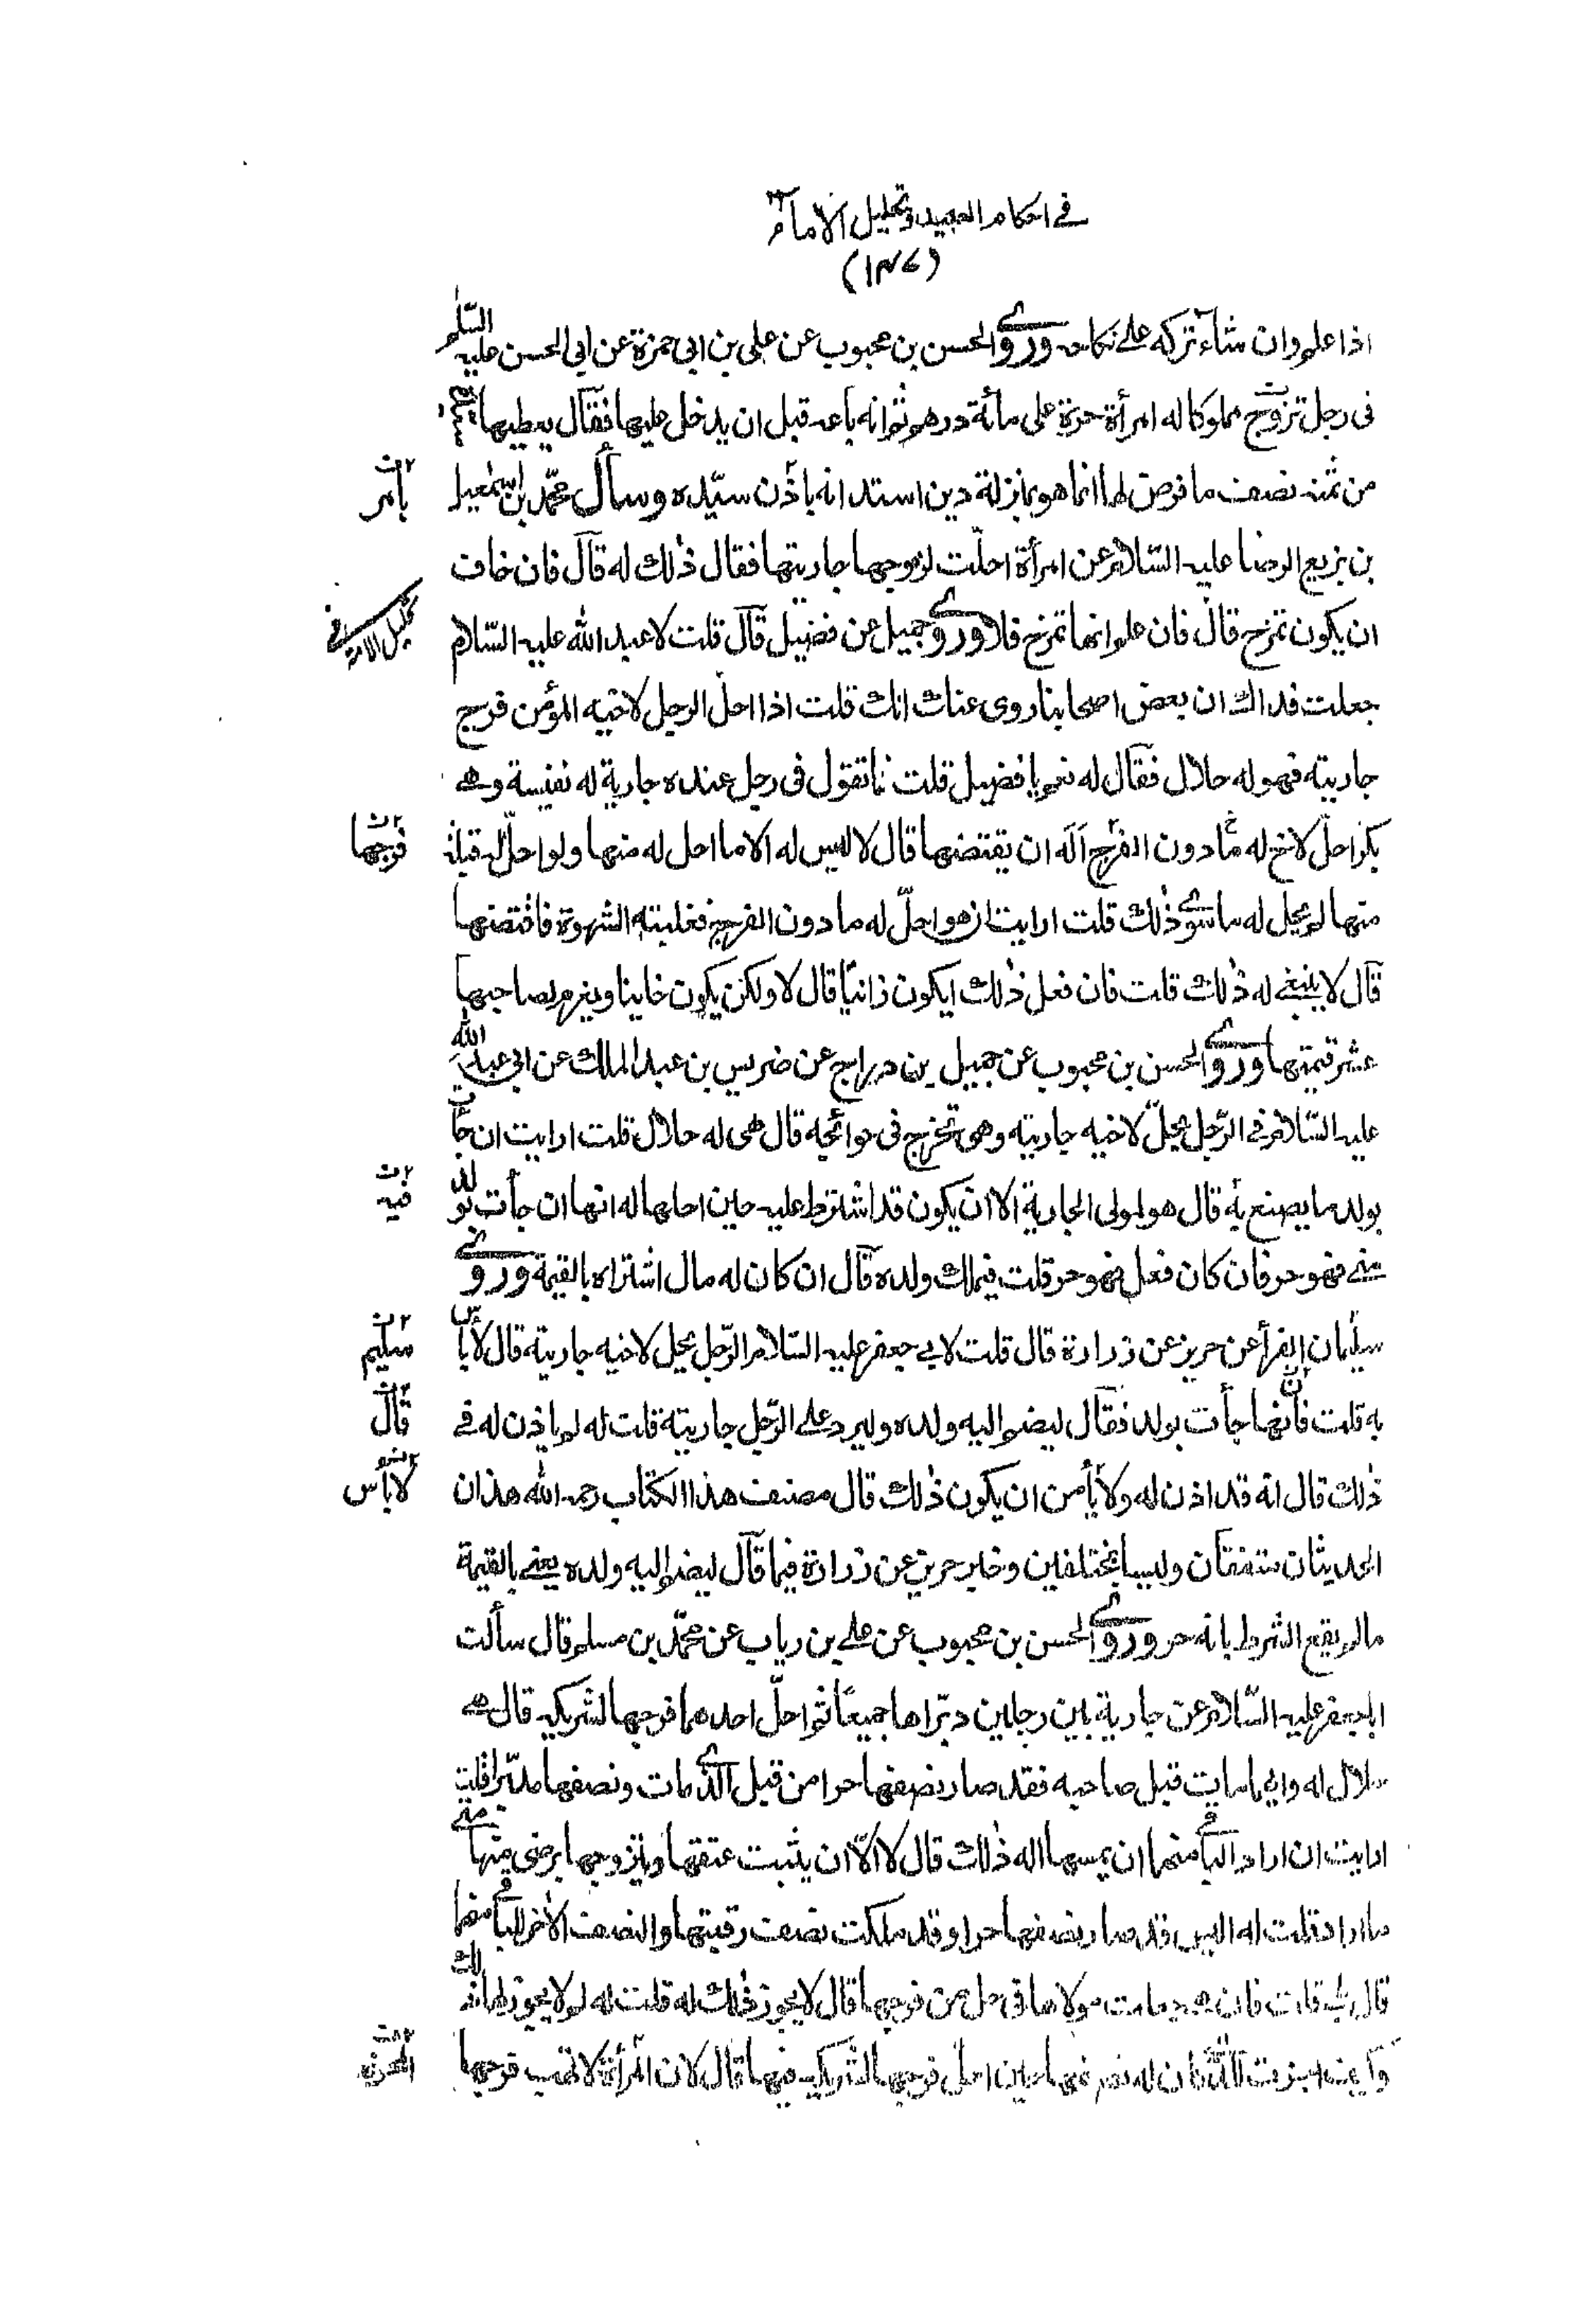 في احكام العبيد وتحليل الاماء
(١٣٤)
اذا علم وان شاء تركه على نكاحه وروى الحسن بن محبوب عن علي بن ابي حمزة عن ابي الحسن عليه السلم
في رجل تزوج مملوكا له امرأة حرة على مأئة درهم ثم انه باعه قبل ان يدخل عليها فقال يعطيها
من ثمنه نصف ما فرض لها انما هو بمنزلة دين استدانه باذن سيّده وسأل محمّد بن اسمعيل
بامر
بن بزيع الرضا عليه السّلام عن امرأة احلّت لزوجها جاريتها فقال ذٰلك له قال فان خاف
ان يكون تمزح قال فان علم انها تمزح فلا وروى جميل عن فضيل قال قلت لابي عبد الله عليه السّلام
تحليل الامة
جعلت فداك ان بعض اصحابنا روى عنك انك قلت اذا احلّ الرجل لاخيه المؤمن فرج
جاريته فهو له حلال فقال له نعم يا فضيل قلت فما تقول في رجل عنده جارية له نفيسة وهي
بكر احلّ لاخ له ما دون الفرج أله ان يقتضها قال لا ليس له الا ما احل له منها ولو احلّ له قبلة
فرجها
منها لم يحل له ما سوى ذٰلك قلت ارايت ان هو احلّ له ما دون الفرج فغلبته الشهوة فاقتضها
قال لا ينبغي له ذٰلك قلت فان فعل ذٰلك ايكون زانيًا قال لا ولكن يكون خاينا ويغرم لصاحبها
عشر قيمتها وروى الحسن بن محبوب عن جميل بن دراج عن ضريس بن عبد الملك عن ابي عبد الله
عليه السّلام في الرّجل يحلّ لاخيه جاريته وهي تخرج في حوائجه قال هي له حلال قلت ارايت ان جأت
بولد ما يصنع به قال هو لمولى الجارية الا ان يكون قد اشترط عليه حين احلها له انها ان جأت بولد
فيه
مني فهو حر فان كان فعل فهو حر قلت فيملك ولده قال ان كان له مال اشتراه بالقيمة وروى
سليمٰان الفرأ عن حريز عن زرارة قال قلت لابي جعفر عليه السّلام الرّجل يحل لاخيه جاريته قال لا بأس
سليم
به قلت فانّها جأت بولد فقال ليضم اليه ولده وليرد على الرّجل جاريته قلت له لم ياذن له في
قال
ذٰلك قال انه قد اذن له ولا يأمن ان يكون ذٰلك قال مصنف هذا الكتاب رحمه الله هذان
لا بأس
الحديثان متفقان وليسا بمختلفين وخبر حريز عن زرارة فيما قال ليضم اليه ولده يعني بالقيمة
ما لم يقع الشرط بانه حر وروى الحسن بن محبوب عن علي بن رياب عن محمّد بن مسلم قال سألت
ابا جعفر عليه السّلام عن جارية بين رجلين دبّراها جميعًا ثم احلّ احدهما فرجها لشريكه قال هي
حلال له وايهما مات قبل صاحبه فقد صار نصفها حرا من قبل الّذي مات ونصفها مدبّرا قلت
ارايت ان اراد الباقي منهما ان يمسها اله ذٰلك قال لا الّا ان يثبت عتقها ويتزوجها برضى منها متى
ما اراد قلت له اليس قد صار نصفها حرا وقد ملكت نصف رقبتها والنصف الاخر للباقي منهما
قال بلى قلت فان هي جعلت مولاها في حل من فرجها قال لا يجوز ذٰلك له قلت له لم لا يجوز لها ذلك
وكيف اجزت للّذي كان له نصفها حين احلّ فرجها لشريكه فيها قال لان المرأة لا تهب فرجها
الحرة